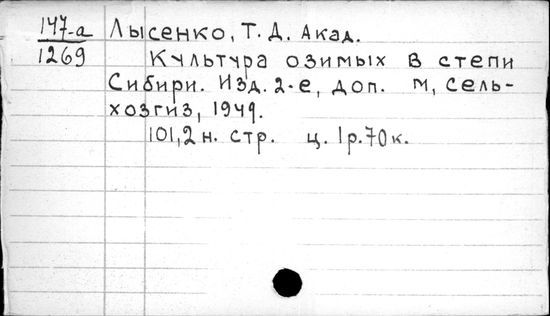 147-а Лысенко, Т. Д. Акад.
1269 Культура озимых в степи
Сибири. Изд. 2-е, доп. М, Сель-
хозгиз, 1949.
101,2 н. стр. ц. 1р.70к.